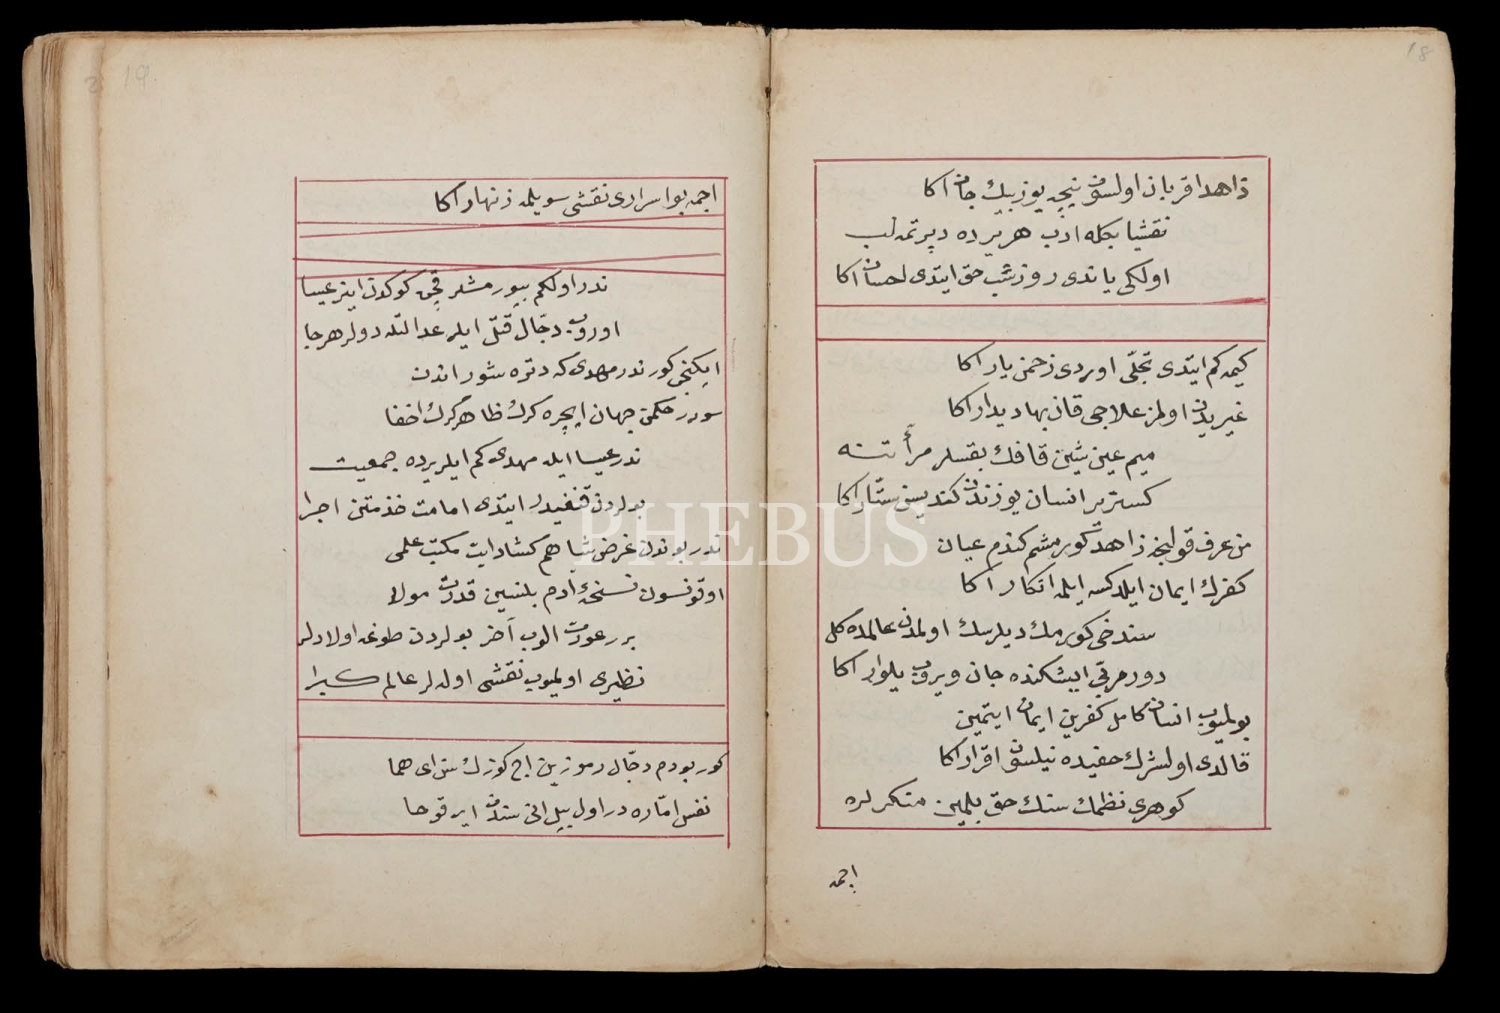 18
زاهدا قربان اولسون نيجه يوز بيك جان اكا
نقشيا بكله ادب هر يرده دپرتمه لب
اولكى ياندى روز شب حق ايتدى احسان اكا
كيمه كم ايتدى تجلّى اوردى زخمن يار اكا
غيريدن اولمز علاجى قان بها ديدار اكا
ميم عين شين قافك بقسلر مرأتنه
كسترر انسان يوزندن كنديسن ستّار اكا
من عرف قولنجه زاهد كورمشم كندم عيان
كفرك ايمان ايلدكسه ايلمه انكار اكا
سندخى كورمك ديلرسك اولمدن عالمده كل
دور مرقى ايشكنده جان ويروب يلوار اكا
بولميوب انسان كامل كفرين ايمان ايتمين
قالدى اول شرك حفيده نيلسون اقرار اكا
كوهرى نظمك سنك حق بلمين منكرلره
اجمه
19
اجمه بو اسرارى نقشى سويلمه زنهار اكا
ندر اولكم بيورمشلر قچن كوكدن اينر عيسا
اوروب دجّال قتل ايلر عدالتله دولر هر جا
ايكنجى كور ندر مهدى كه دتره شور اندن
سورر حكمن جهان ايچره كرك ظاهر كرك اخفا
ندر عيسا ايله مهدى كم ايلر يرده جمعيت
بولردن قنغيدر ايتدى امامت خذمتن اجرا
ندر بوندن غرض شاهم كشاد ايت مكتب علمى
اوقونسون نسخهٔ آدم بلنسين قدرت مولا
بر عورت الوب آخر بولردن طوغه اولادلر
نظيرى اولميوب نقشى اوله لر عالم كبرا
كور بودم دجّال رموزين اچ كوزك سن اى هما
نفس امّاره در اول بيل انى سندن اير قوحا
PHEBUS